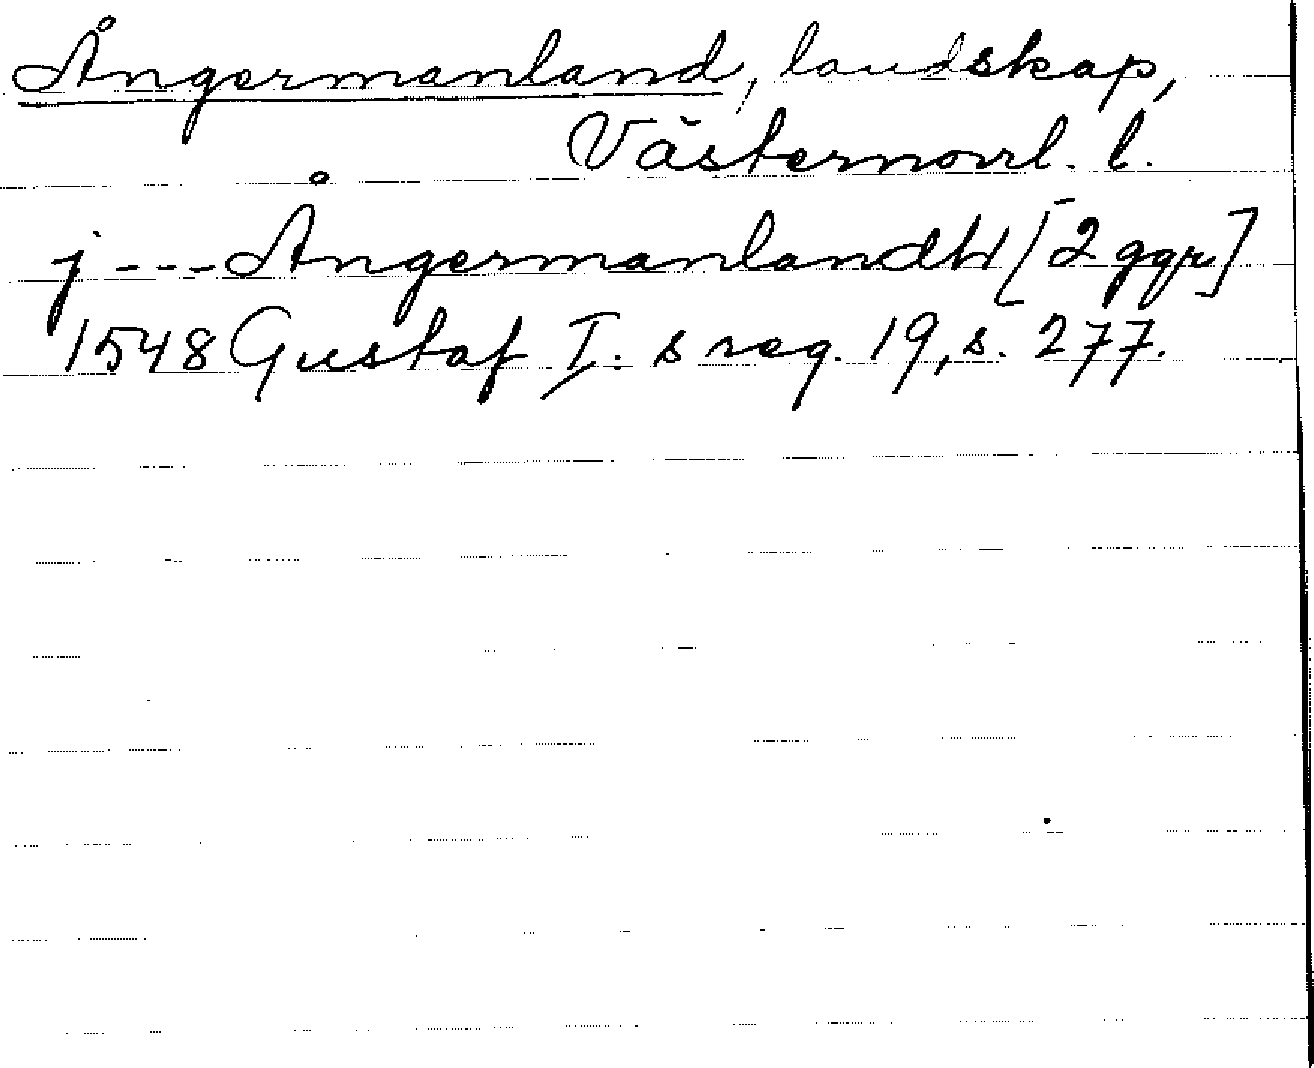 Ångermanland, landskap,
Västernorrl. l.
j --- Ångermanlandh [2 ggr]
1548 Gustaf I:s reg. 19, s. 277.